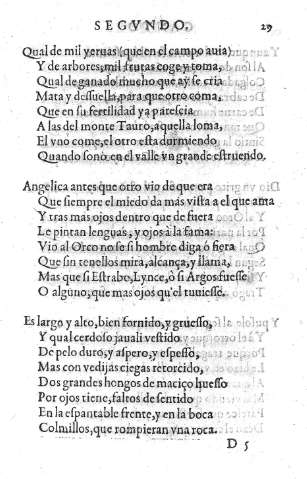 SEGVNDO. 29
Qual de mil yeruas (que en el campo auia)
Y de arboles, mil frutas coge y toma,
Qual de ganado mucho que ay se cria
Mata y dessuella, para que otro coma,
Que en su fertilidad ya parescia
A las del monte Tauro, aquella loma,
El vno come, el otro esta durmiendo
Quando sonò en el valle vn grande estruendo.
Angelica antes que otro vio de que era
Que siempre el miedo da mas vista a el que ama
Y tras mas ojos dentro que de fuera
Le pintan lenguas, y ojos à la fama:
Vio al Orco no se si hombre diga ó fiera
Que sin tenellos mira, alcança, y llama,
Mas que si Estrabo, Lynce, ò si Argos fuesse
O alguno, que mas ojos qu'el tuuiesse.
Es largo y alto, bien fornido, y gruesso,
Y qual cerdoso jauali vestido
De pelo duro, y aspero, y espesso,
Mas con vedijas ciegas retorcido,
Dos grandes hongos de maciço huesso
Por ojos tiene, faltos de sentido
En la espantable frente, y en la boca
Colmillos, que rompieran vna roca.
D 5